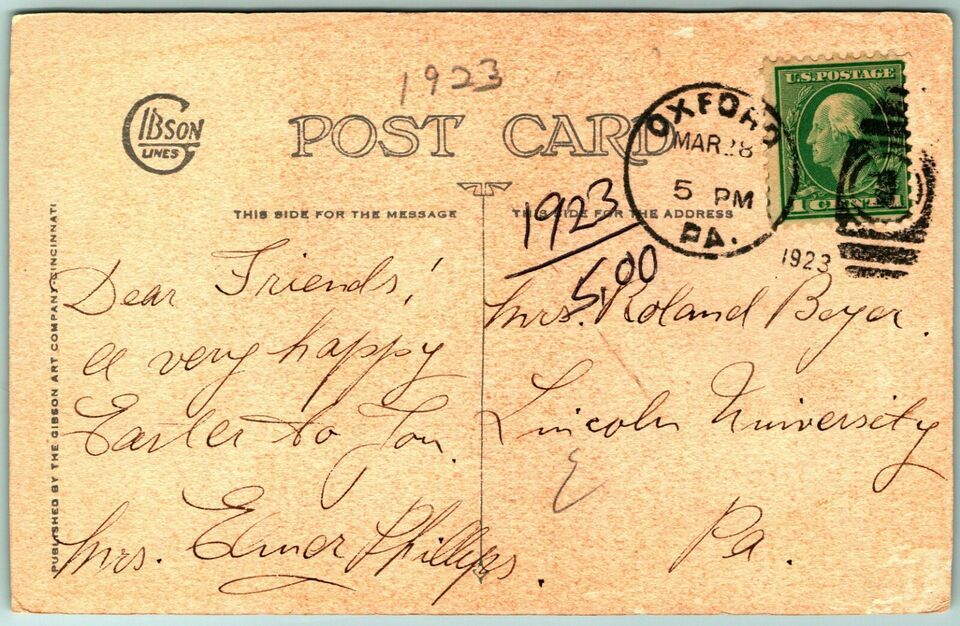 1923
GIBSON
LINES
POST CARD
OXFORD
MAR 28
5 PM
PA.
1923
U.S. POSTAGE
1 CENT 1
THIS SIDE FOR THE MESSAGE
THIS SIDE FOR THE ADDRESS
1923
5.00
PUBLISHED BY THE GIBSON ART COMPANY CINCINNATI
Dear Friends!
A very happy
Easter to You.
Mrs. Elmer Phillips.
Mrs. Roland Beyer.
Lincoln University
Pa.